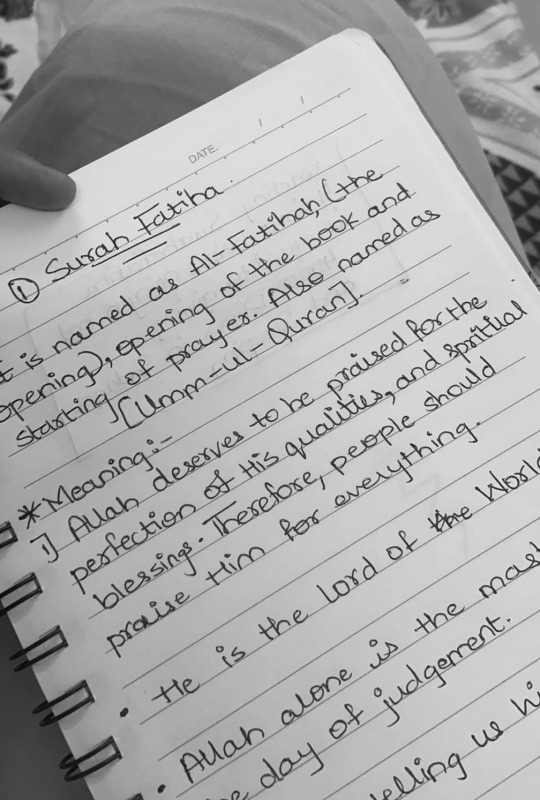 DATE. / /
① Surah Fatiha.
t is named as Al-Fatihah, (the
opening), opening of the book and
starting of prayer. Also named as
[Umm-ul-Quran].
* Meaning:-
1] Allah deserves to be praised for the
perfection of His qualities, and spritial
blessings. Therefore, people should
praise Him for everything.
• He is the lord of the World
• Allah alone is the mast
e day of judgement.
elling us hi